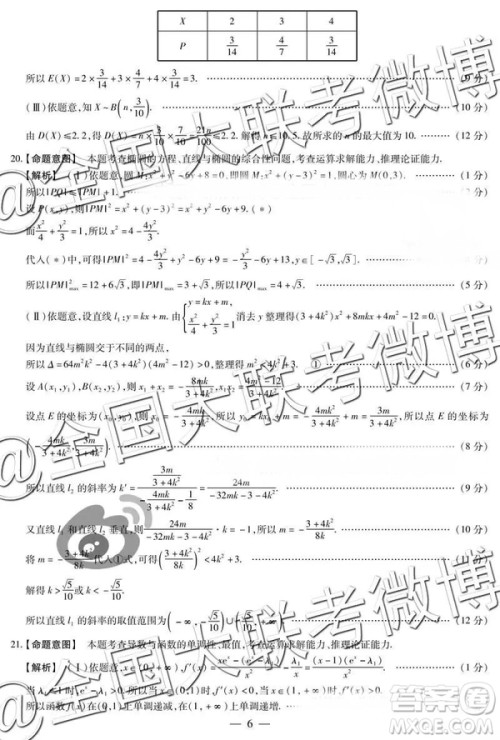 X 2 3 4
P 3/14 4/7 3/14
所以E(X)=2×3/14+3×4/7+4×3/14=3. (9分)
(Ⅲ)依题意,知X~B(n,3/10), (10分)
由D(X)≤2.2,得D(X)=n×3/10×7/10=21n/100≤2.2.解得n≤10.5.故所求的n的最大值为10. (12分)
20.【命题意图】 本题考查椭圆的方程,直线与椭圆的综合性问题,考查运算求解能力,推理论证能力.
【解析】 (Ⅰ)依题意,圆M:x²+y²-6y+8=0,即圆M:x²+(y-3)²=1,圆心为M(0,3).
所以|PQ|≤|PM|+1. (1分)
设P(x,y),则|PM|²=x²+(y-3)²=x²+y²-6y+9. (*)
而x²/4+y²/3=1,所以x²=4-4y²/3.
代入(*)中,可得|PM|²=4-4y²/3+y²-6y+9=-y²/3-6y+13,y∈[-√3,√3].
所以|PM|²max=12+6√3,即|PM|max=3+√3,所以|PQ|max=4+√3. (5分)
(Ⅱ)依题意,设直线l₁:y=kx+m. 由{y=kx+m, x²/4+y²/3=1 消去y整理得(3+4k²)x²+8mkx+4m²-12=0.
因为直线与椭圆交于不同的两点,
所以Δ=64m²k²-4(3+4k²)(4m²-12)>0,整理得 ①
设A(x₁,y₁),B(x₂,y₂),则x₁+x₂=-8mk/(3+4k²),x₁x₂= (7分)
设点E的坐标为(x₀,y₀),则x₀=-4mk/(3+4k²), 所以 所以点E的坐标为
(-4mk/(3+4k²),3m/(3+4k²)). (8分)
所以直线l₂的斜率为k′= = 24m/(-32mk-3-4k²). (9分)
又直线l₁和直线l₂垂直,则24m/(-32mk-3-4k²)·k=-1,所以m=-(3+4k²)/8k. (10分)
将m=-(3+4k²)/8k代入①式,可得((3+4k²)/8k)²<4k²+3. (11分)
解得k>√5/10或k<-√5/10.
所以直线l₁的斜率的取值范围为(-∞,-√5/10)∪(√5/10,+∞). (12分)
21.【命题意图】 本题考查导数与函数的单调性、最值,考查运算求解能力、推理论证能力.
【解析】 (Ⅰ)依题意,x∈(0,+∞),f′(x)= =(x-1)(eˣ-λ₁)/x². (1分)
当λ₁≤1时,eˣ-λ₁>0,所以当x∈(0,1)时,f′(x)<0,当x∈(1,+∞)时,f′(x)>0.
所以函数f(x)在(0,1)上单调递减,在(1,+∞)上单调递增. (3分)
— 6 —
@全国大联考微博
@全国大联考微博
@全国大联考微博
答案圈
MXQE.COM